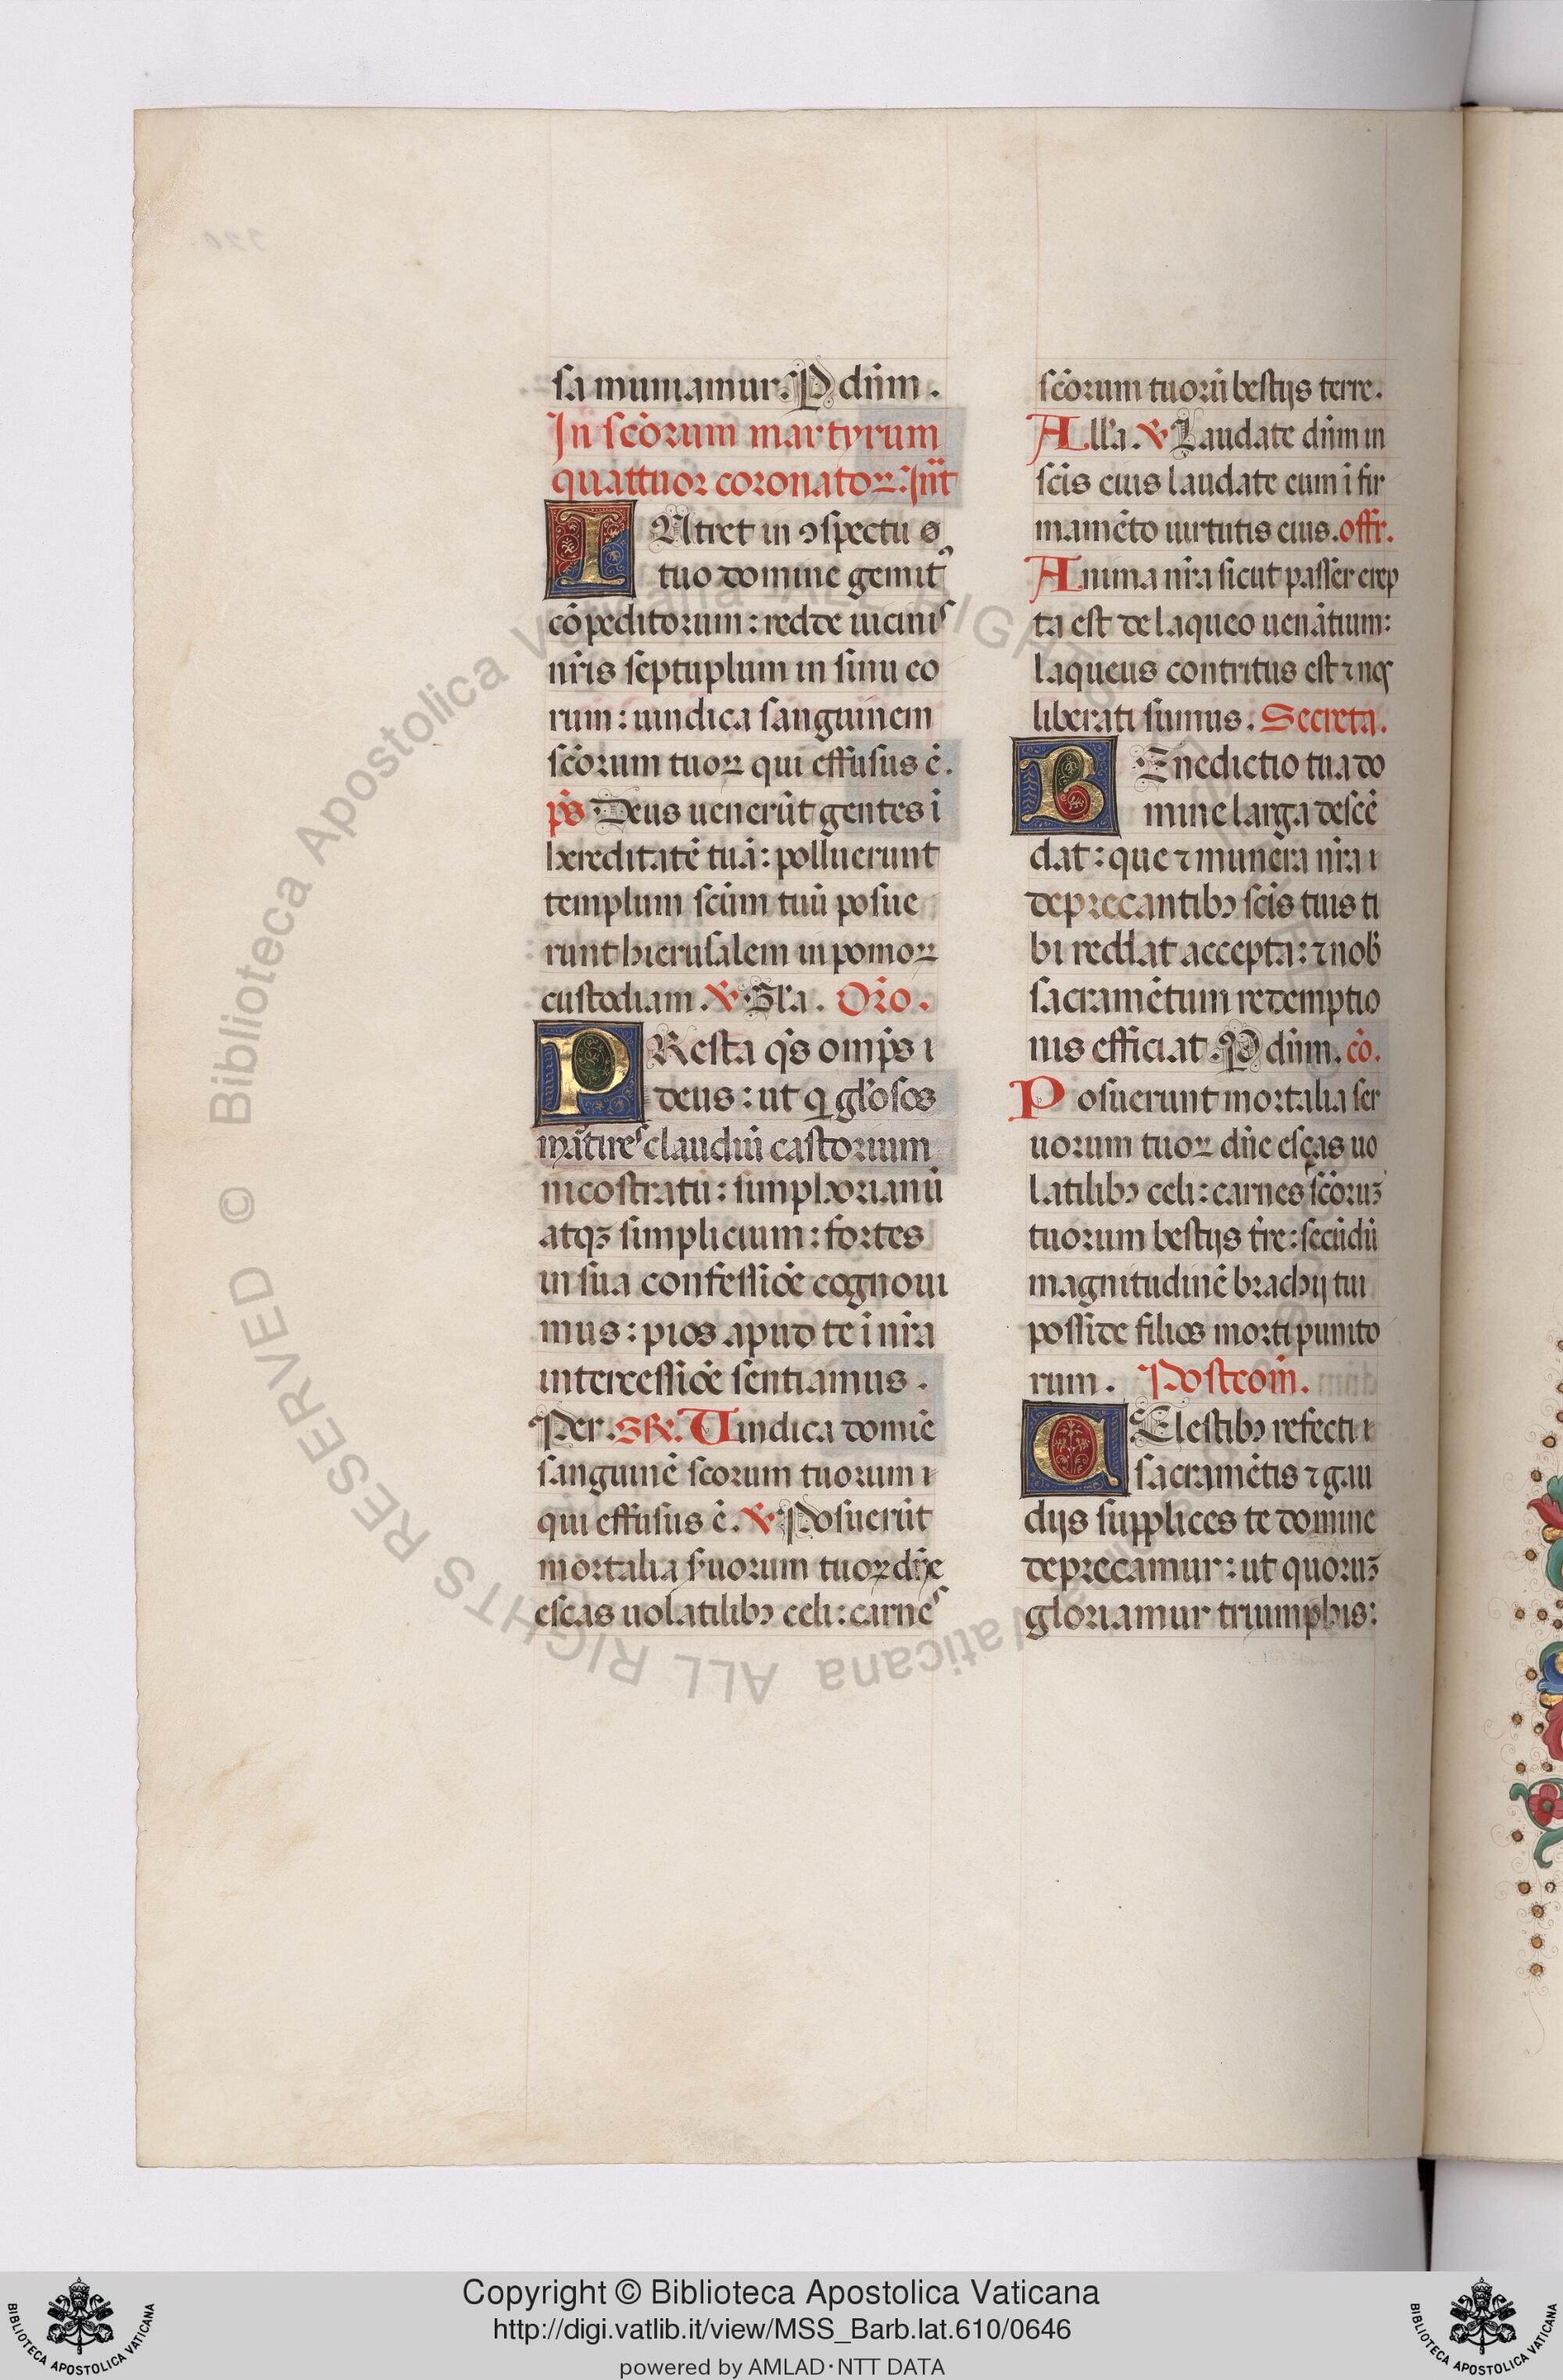 sa muniamur. P dñm.
In scõrum martyrum
quattuor coronatoꝝ. Int̃
INtret in ꝯspectu
tuo domine gemitꝰ
cõpeditorum: redde uicinis
nr̃is septuplum in sinu eo
rum: uindica sanguinem
scõrum tuoꝝ qui effusus ẽ.
p̃s Deus uenerũt gentes ĩ
hereditatẽ tuã: polluerunt
templum scũm tuũ posue
runt hierusalem in pomoꝝ
custodiam. ℣ Gl̃a. Oro̅.
PResta q̃s omp̃s i
deus: ut q gl̃osos
mãtires claudiũ castorium
nicostratũ: simphorianũ
atqꝫ simplicium: fortes
in sua confessiõe cognoui
mus: pios apud te ĩ nr̃a
intercessiõe sentiamus.
Per. gr̃. Uindica domiẽ
sanguinẽ scorum tuorum i
qui effusus ẽ. ℣ Posuerũt
mortalia s̃uorum tuoꝝ dñe
escas uolatilibꝰ celi: carnes
scõrum tuorũ bestijs terre.
All̃a. ℣ Laudate dñm in
scĩs eius laudate eum ĩ fir
mamẽto uirtutis eius. offr̃.
Anima nr̃a sicut passer erep
ta est de laqueo uenãtium:
laqueus contritus est ⁊ nos
liberati sumus. Secreta.
BEnedictio tua do
mine larga descẽ
dat: que ⁊ munera nr̃a i
deprecantibꝰ scĩs tuis ti
bi reddat accepta: ⁊ nob̃
sacramẽtum redemptio
nis efficiat. P dñm. cõ.
Posuerunt mortalia ser
uorum tuoꝝ dñe escas uo
latilibꝰ celi: carnes scõruꝫ
tuorum bestijs t̃re: secũdũ
magnitudinẽ brachij tui
posside filios morti punito
rum. Postcom̃.
CElestibꝰ refecti i
sacramẽtis ⁊ gau
dijs supplices te domine
deprecamur: ut quoruꝫ
gloriamur triumphis:
© Biblioteca Apostolica Vaticana ALL RIGHTS RESERVED
Copyright © Biblioteca Apostolica Vaticana
http://digi.vatlib.it/view/MSS_Barb.lat.610/0646
powered by AMLAD·NTT DATA
BIBLIOTECA APOSTOLICA VATICANA
BIBLIOTECA APOSTOLICA VATICANA